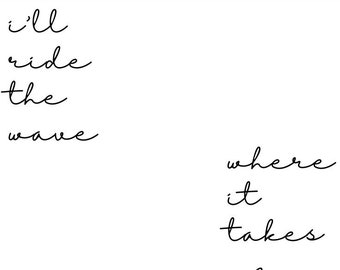 i'll
ride
the
wave
where
it
takes